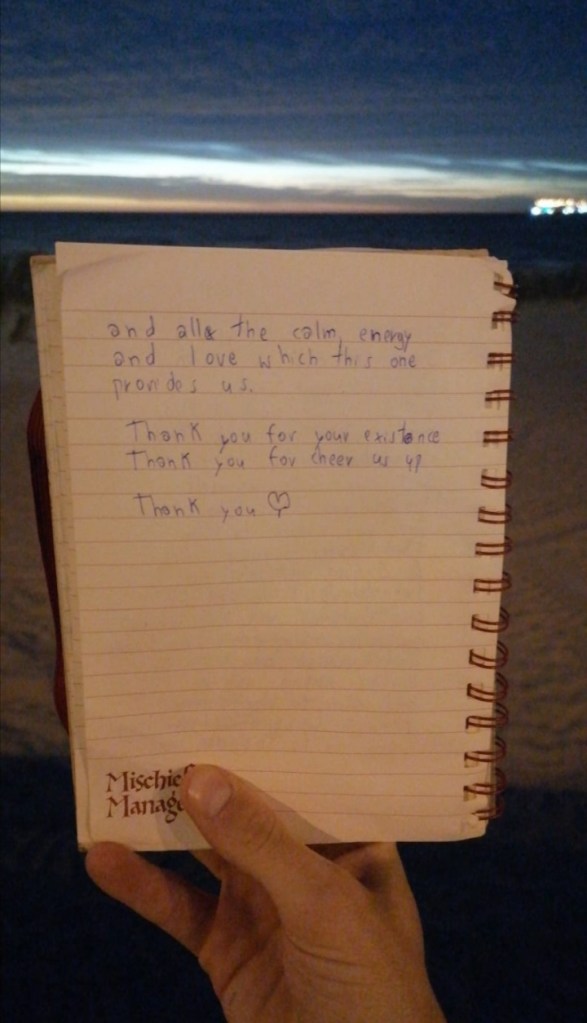 and all the calm, energy
and love which this one
provides us.
Thank you for your existance
Thank you for cheer us up
Thank you
Mischief
Manage